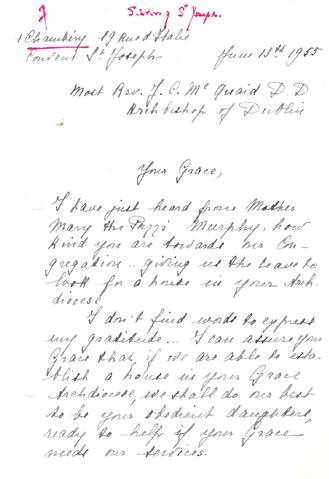 Sisters of St Joseph.
+ Chambéry 19 Rue d'Italie
Convent St Joseph June 13th 1955
Most Rev. J. C. Mc Quaid D. D
Archbishop of Dublin
Your Grace,
I have just heard from Mother
Mary the Pazzi Murphy, how
kind you are towards our Con-
gregation.. giving us the leave to
look for a house in your Arch-
diocese.
I don't find words to express
my gratitude... I can assure your
Grace that, if we are able to esta-
blish a house in your Grace
Archdiocese, we shall do our best
to be your obedient daughters,
ready to help if your Grace
needs our services.